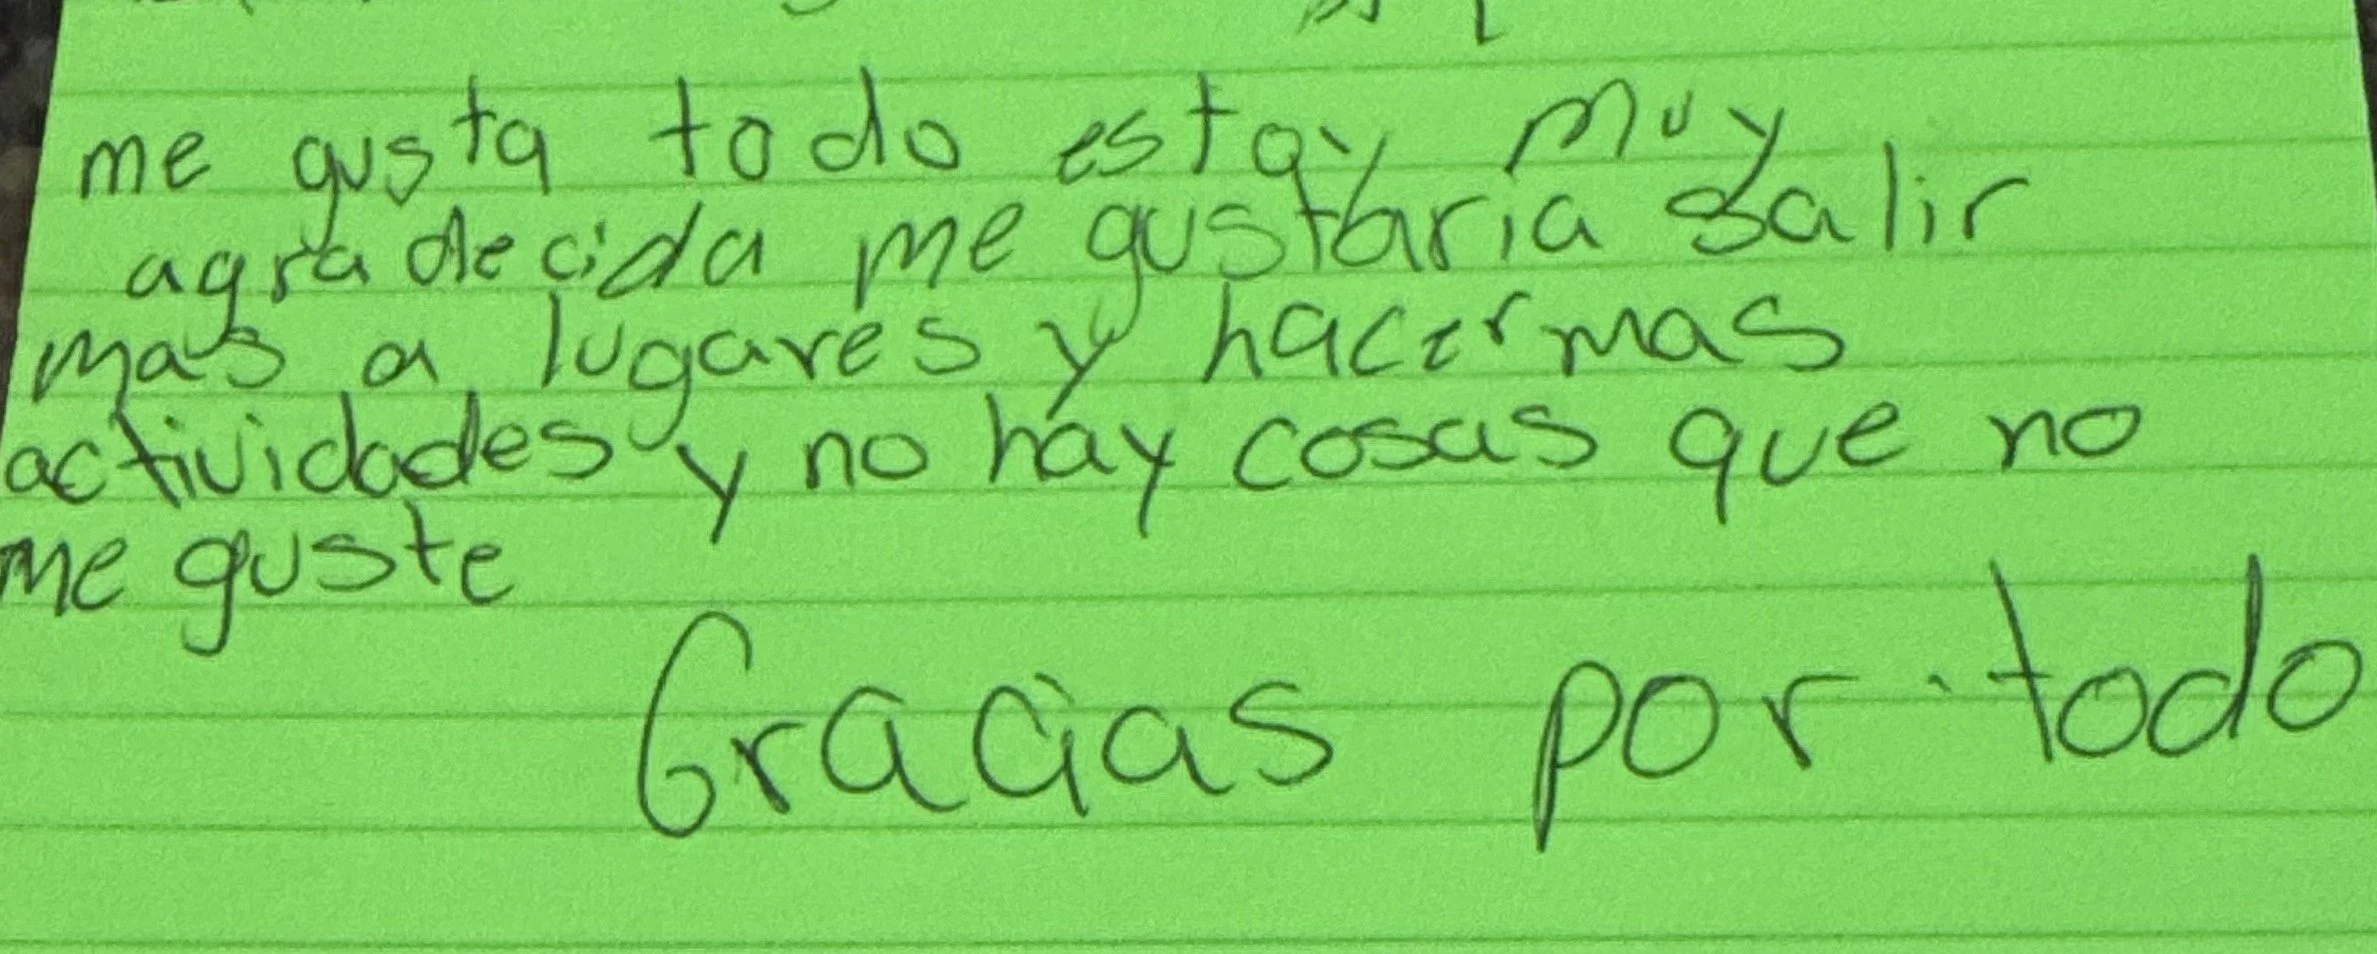 me gusta todo estoy muy
agradecida me gustaria salir
mas a lugares y hacer mas
actividades y no hay cosas que no
me guste
Gracias por todo